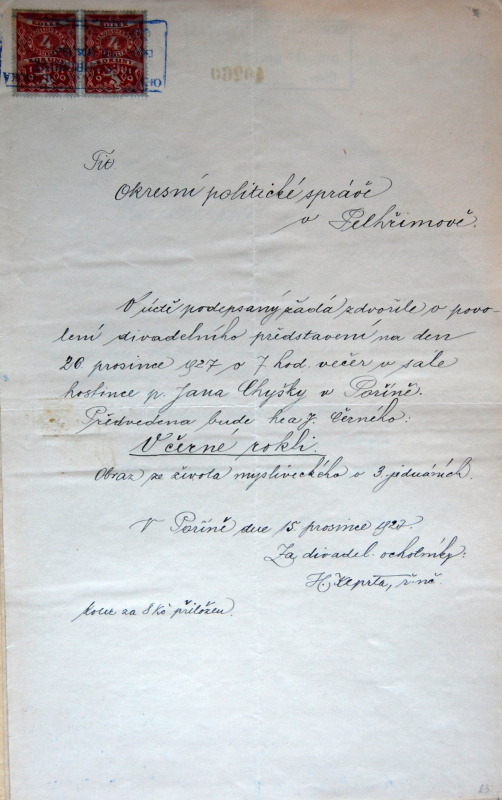 4 4
10260
Tit.
Okresní politické správě
v Pelhřimově.
V úctě podepsaný žádá zdvořile o povo-
lení divadelního představení na den
20 prosince 1927 o 7 hod. večer v sále
hostince p. Jana Chyšky v Poříně.
Předvedena bude hra J. Černého:
V černé rokli.
Obraz ze života mysliveckého o 3. jednáních.
V Poříně dne 15. prosince 1927.
Za divadel. ochotníky:
H. Šeprta, ř. uč.
kolek za 8 Kč přiložen.